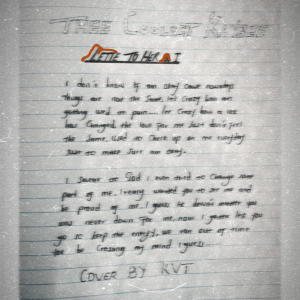 THEE COOLEST
LETTE TO HER I
I don't know if am okay cause nowadays
things are not the same, but crazy how am
getting used to pain... but crazy how u not
how changed the love you me just don't feel
the same, used to check up on me everyday
just to make sure am okay.
I swear to God I even tried to change some
part of me, I really wanted you to see me and
be proud of me. I guess it doesn't matter you
was never down for me, now I gotta let you
go to keep the energy, we ran out of time
you be crossing my mind I guess....
COVER BY KVT